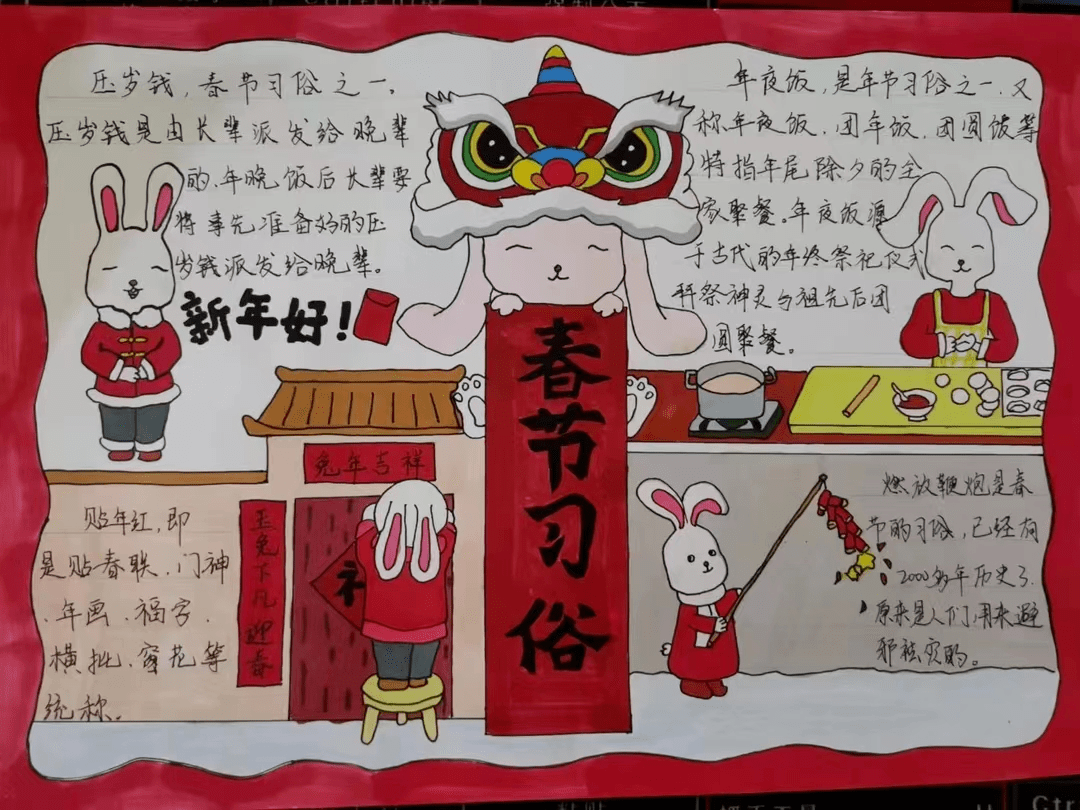 压岁钱，春节习俗之一。
压岁钱是由长辈派发给晚辈
的，年晚饭后长辈要
将事先准备好的压
岁钱派发给晚辈。
新年好！
年夜饭，是年节习俗之一，又
称年夜饭、团年饭、团圆饭等
特指年尾除夕的全
家聚餐。年夜饭源
于古代的年终祭祀仪式
拜祭神灵与祖先后团
圆聚餐。
春节习俗
兔年吉祥
玉兔下凡迎春
福
贴年红，即
是贴春联、门神
、年画、福字、
横批、窗花等
统称。
燃放鞭炮是春
节的习俗，已经有
2000多年历史了，
原来是人们用来避
邪祛灾的。